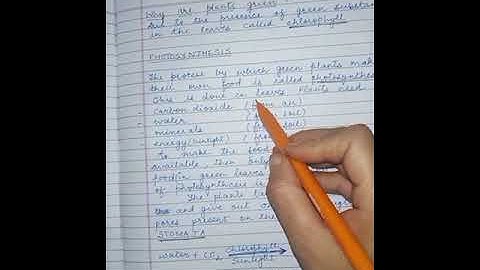 Why are plants green
Due to the presence of green substan
in the leaves called chlorophyll
PHOTOSYNTHESIS
The process by which green plants mak
their own food is called photosynthes
This is done in leaves. Plants need
- Carbon dioxide (from air)
- water ( soil)
- minerals (from soil)
- energy (sunlight) (
To make the food
available then only
food in green leaves
of photosynthesis is
The plants ta
and give out o
pores present on the
STOMATA
water + CO2 Chlorophyll
Sunlight